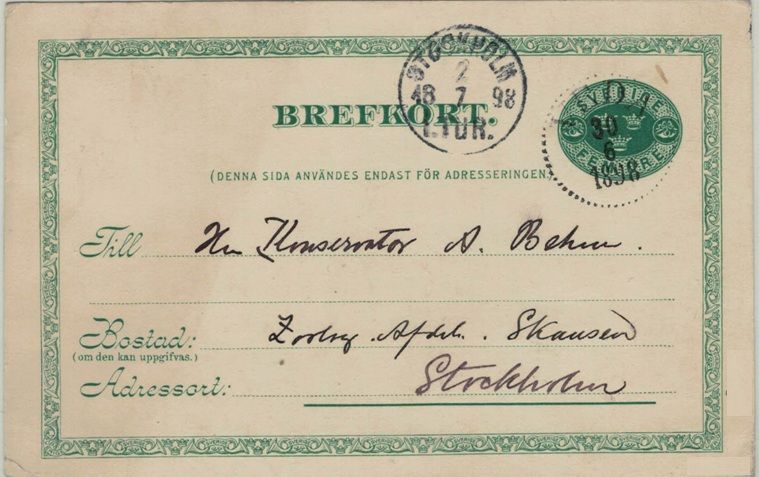 STOCKHOLM
2
18 7 98
1.TUR.
BREFKORT.
SVERIGE
FEM ÖRE
SVEDALA
30
6
1898
(DENNA SIDA ANVÄNDES ENDAST FÖR ADRESSERINGEN.)
Till Hr Konservator A. Behm.
Bostad: Zoolog. Afdeln. Skansen
(om den kan uppgifvas.)
Adressort: Stockholm